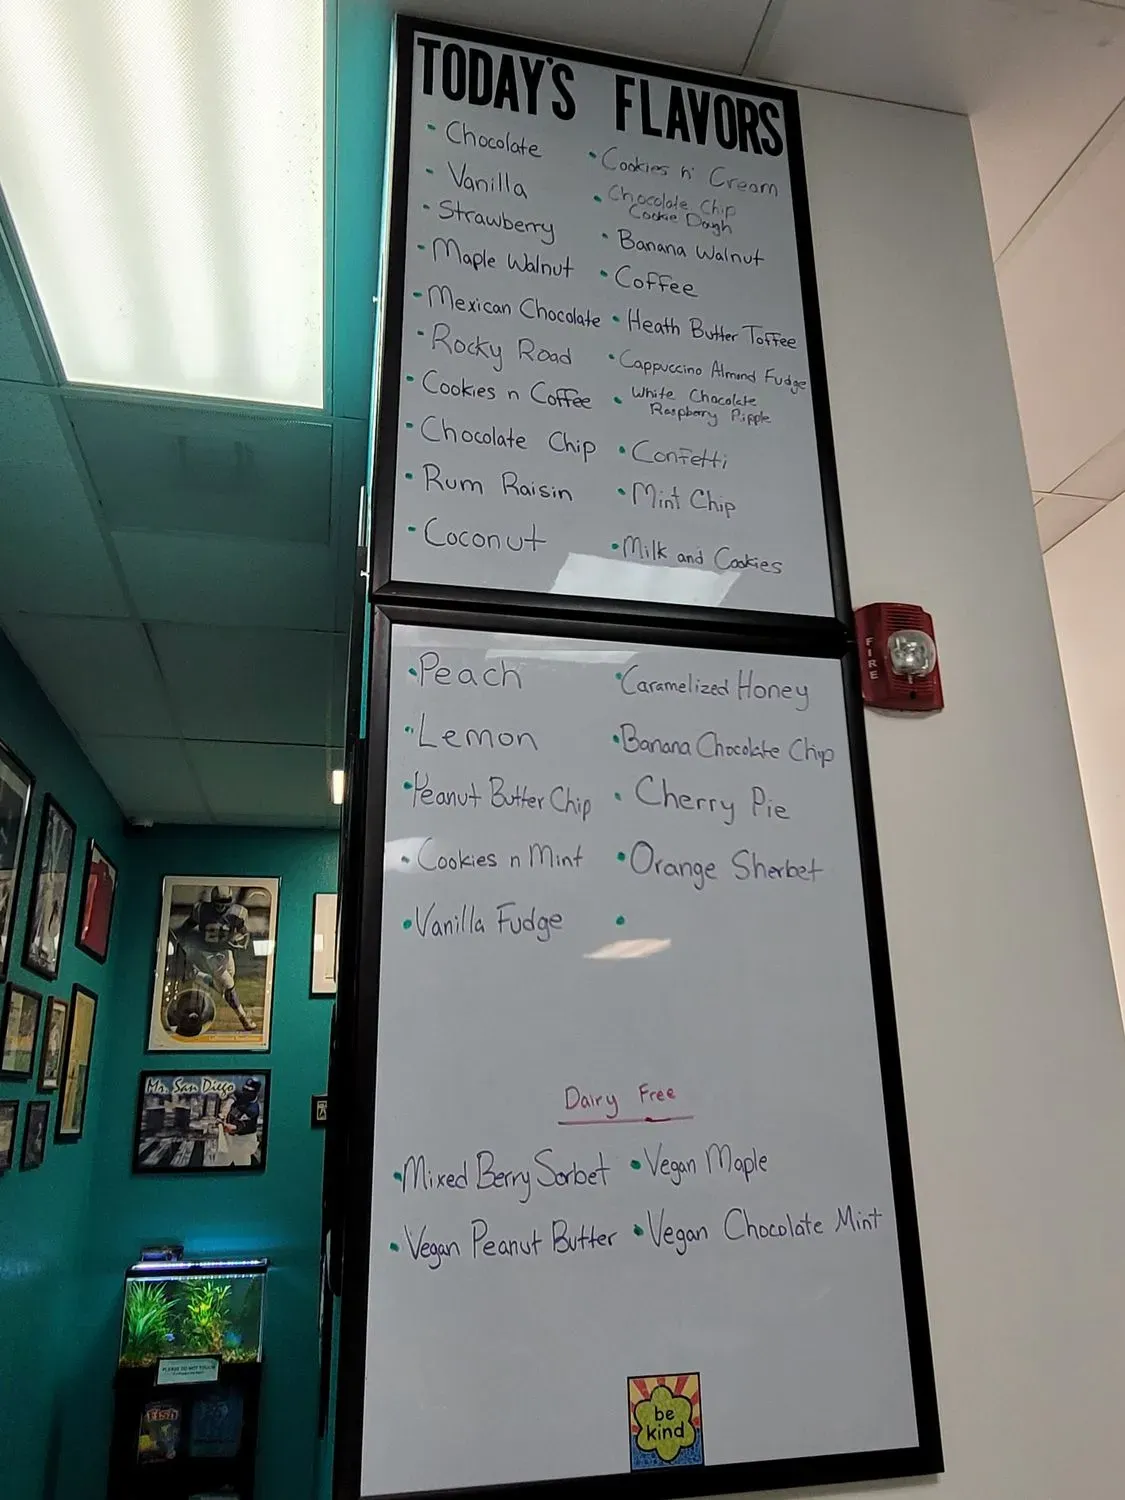 TODAY'S FLAVORS
• Chocolate
• Vanilla
• Strawberry
• Maple Walnut
• Mexican Chocolate
• Rocky Road
• Cookies n Coffee
• Chocolate Chip
• Rum Raisin
• Coconut
• Cookies n' Cream
• Chocolate Chip
Cookie Dough
• Banana Walnut
• Coffee
• Heath Butter Toffee
• Cappuccino Almond Fudge
• White Chocolate
Raspberry Ripple
• Confetti
• Mint Chip
• Milk and Cookies
• Peach
• Lemon
• Peanut Butter Chip
• Cookies n Mint
• Vanilla Fudge
• Caramelized Honey
• Banana Chocolate Chip
• Cherry Pie
• Orange Sherbet
•
Dairy Free
• Mixed Berry Sorbet
• Vegan Peanut Butter
• Vegan Maple
• Vegan Chocolate Mint
be
kind
FIRE
Mr. San Diego
PLEASE DO NOT TOUCH